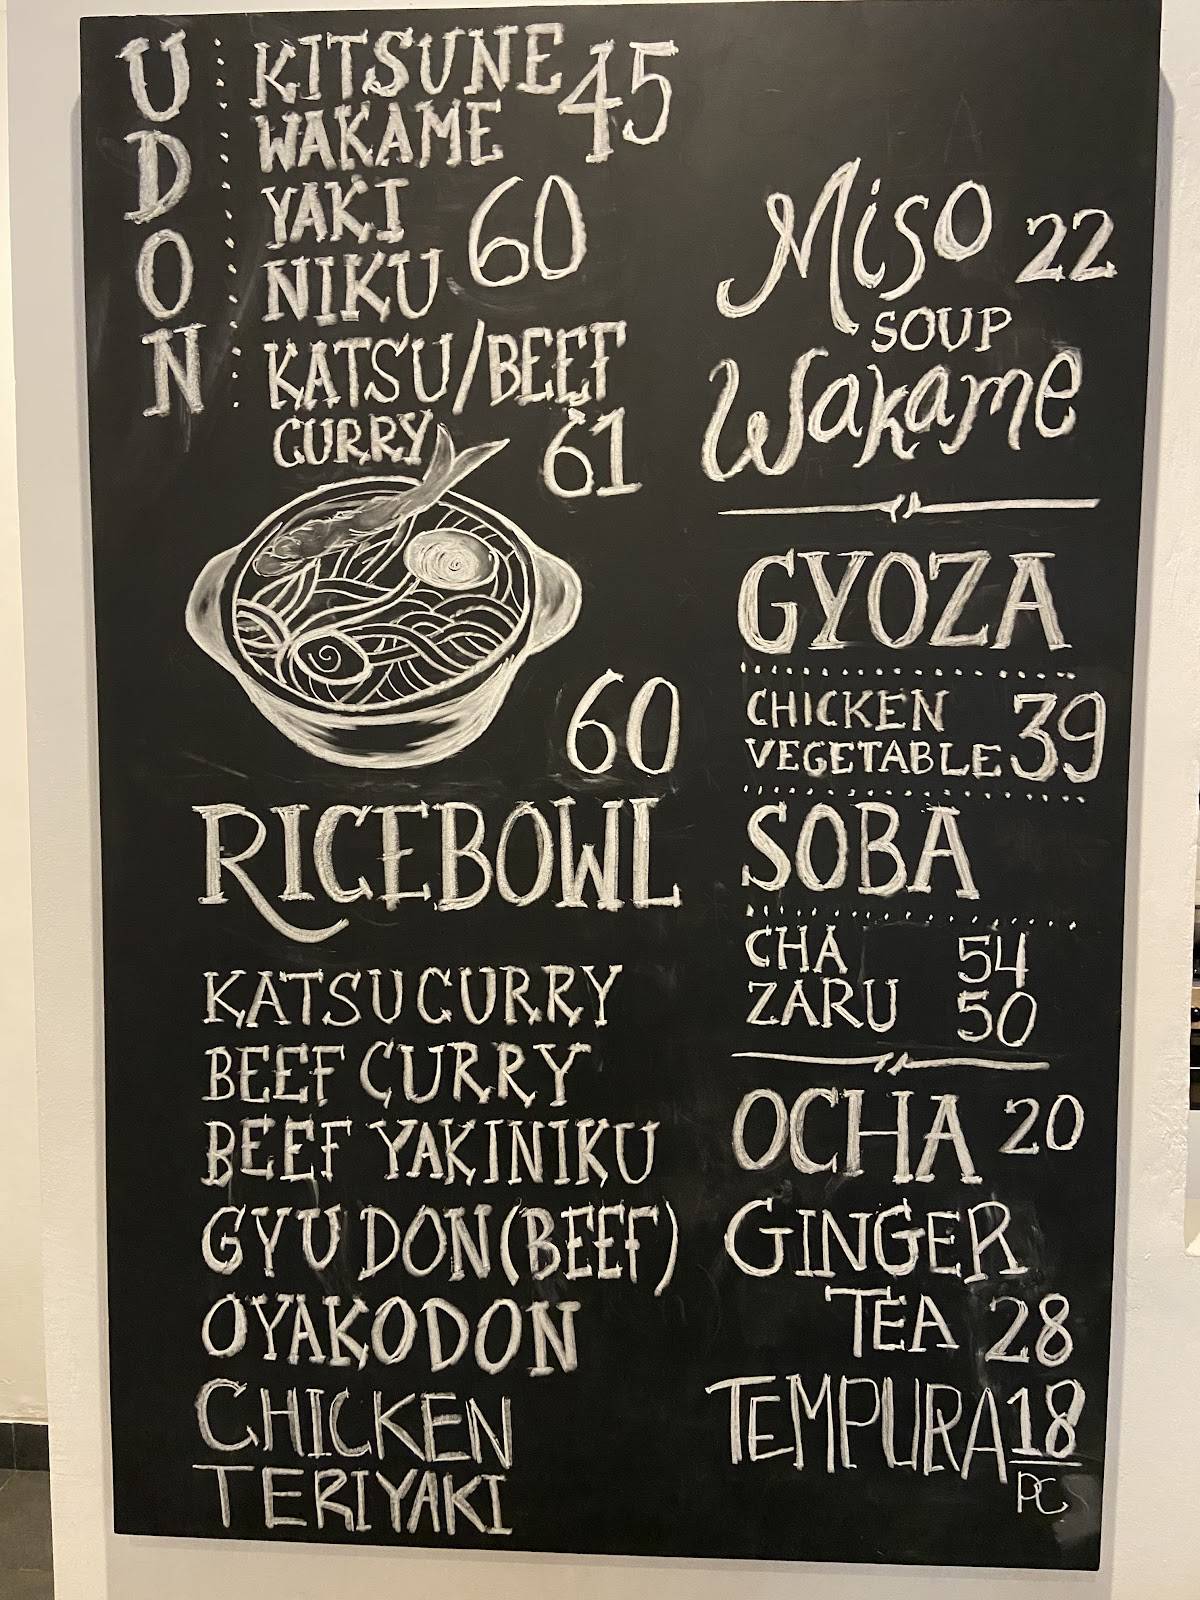 UDON
KITSUNE 45
WAKAME
YAKI 60
NIKU
KATSU/BEEF
CURRY 61
60
RICEBOWL
KATSU CURRY
BEEF CURRY
BEEF YAKINIKU
GYUDON (BEEF)
OYAKODON
CHICKEN
TERIYAKI
Miso 22
SOUP
Wakame
GYOZA
CHICKEN 39
VEGETABLE
SOBA
CHA 54
ZARU 50
OCHA 20
GINGER
TEA 28
TEMPURA 18
PC